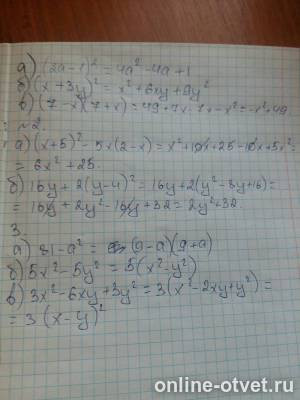 а) (2a-1)² = 4a²-4a+1
б) (x+3y)² = x²+6xy+9y²
в) (7-x)(7+x) = 49+7x-7x-x² = -x²+49.
№2.
а) (x+5)²-5x(2-x) = x²+10x+25-10x+5x² =
= 6x²+25.
б) 16y+2(y-4)² = 16y+2(y²-8y+16) =
= 16y+2y²-16y+32 = 2y²+32.
3.
а) 81-a² = (9-a)(9+a)
б) 5x²-5y² = 5(x²-y²)
в) 3x²-6xy+3y² = 3(x²-2xy+y²) =
= 3(x-y)²
online-otvet.ru